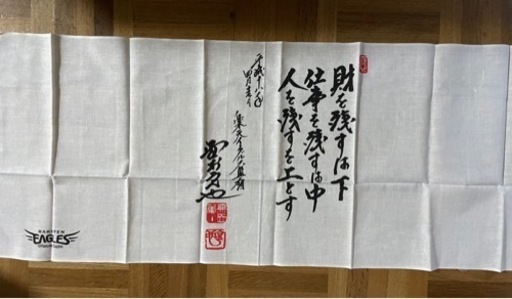 財を残すは下
仕事を残すは中
人を残すを上とす
平成十八年
楽天イーグルス監督
野村克也
RAKUTEN
EAGLES